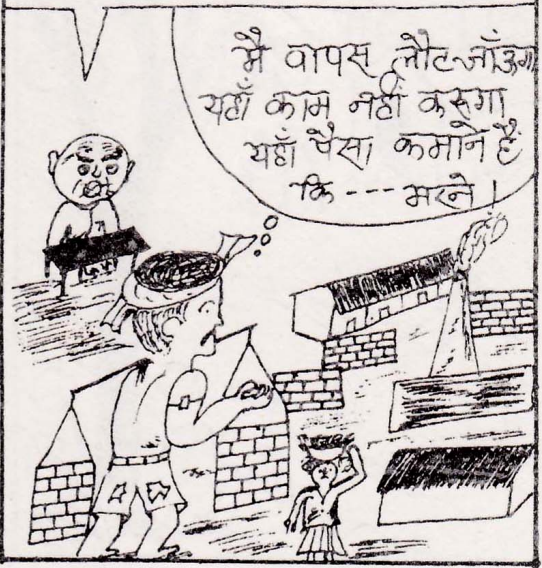 मै वापस लौट जाँऊगा
यहाँ काम नहीं करुगा
यहाँ पैसा कमाने है
कि --- मरने!